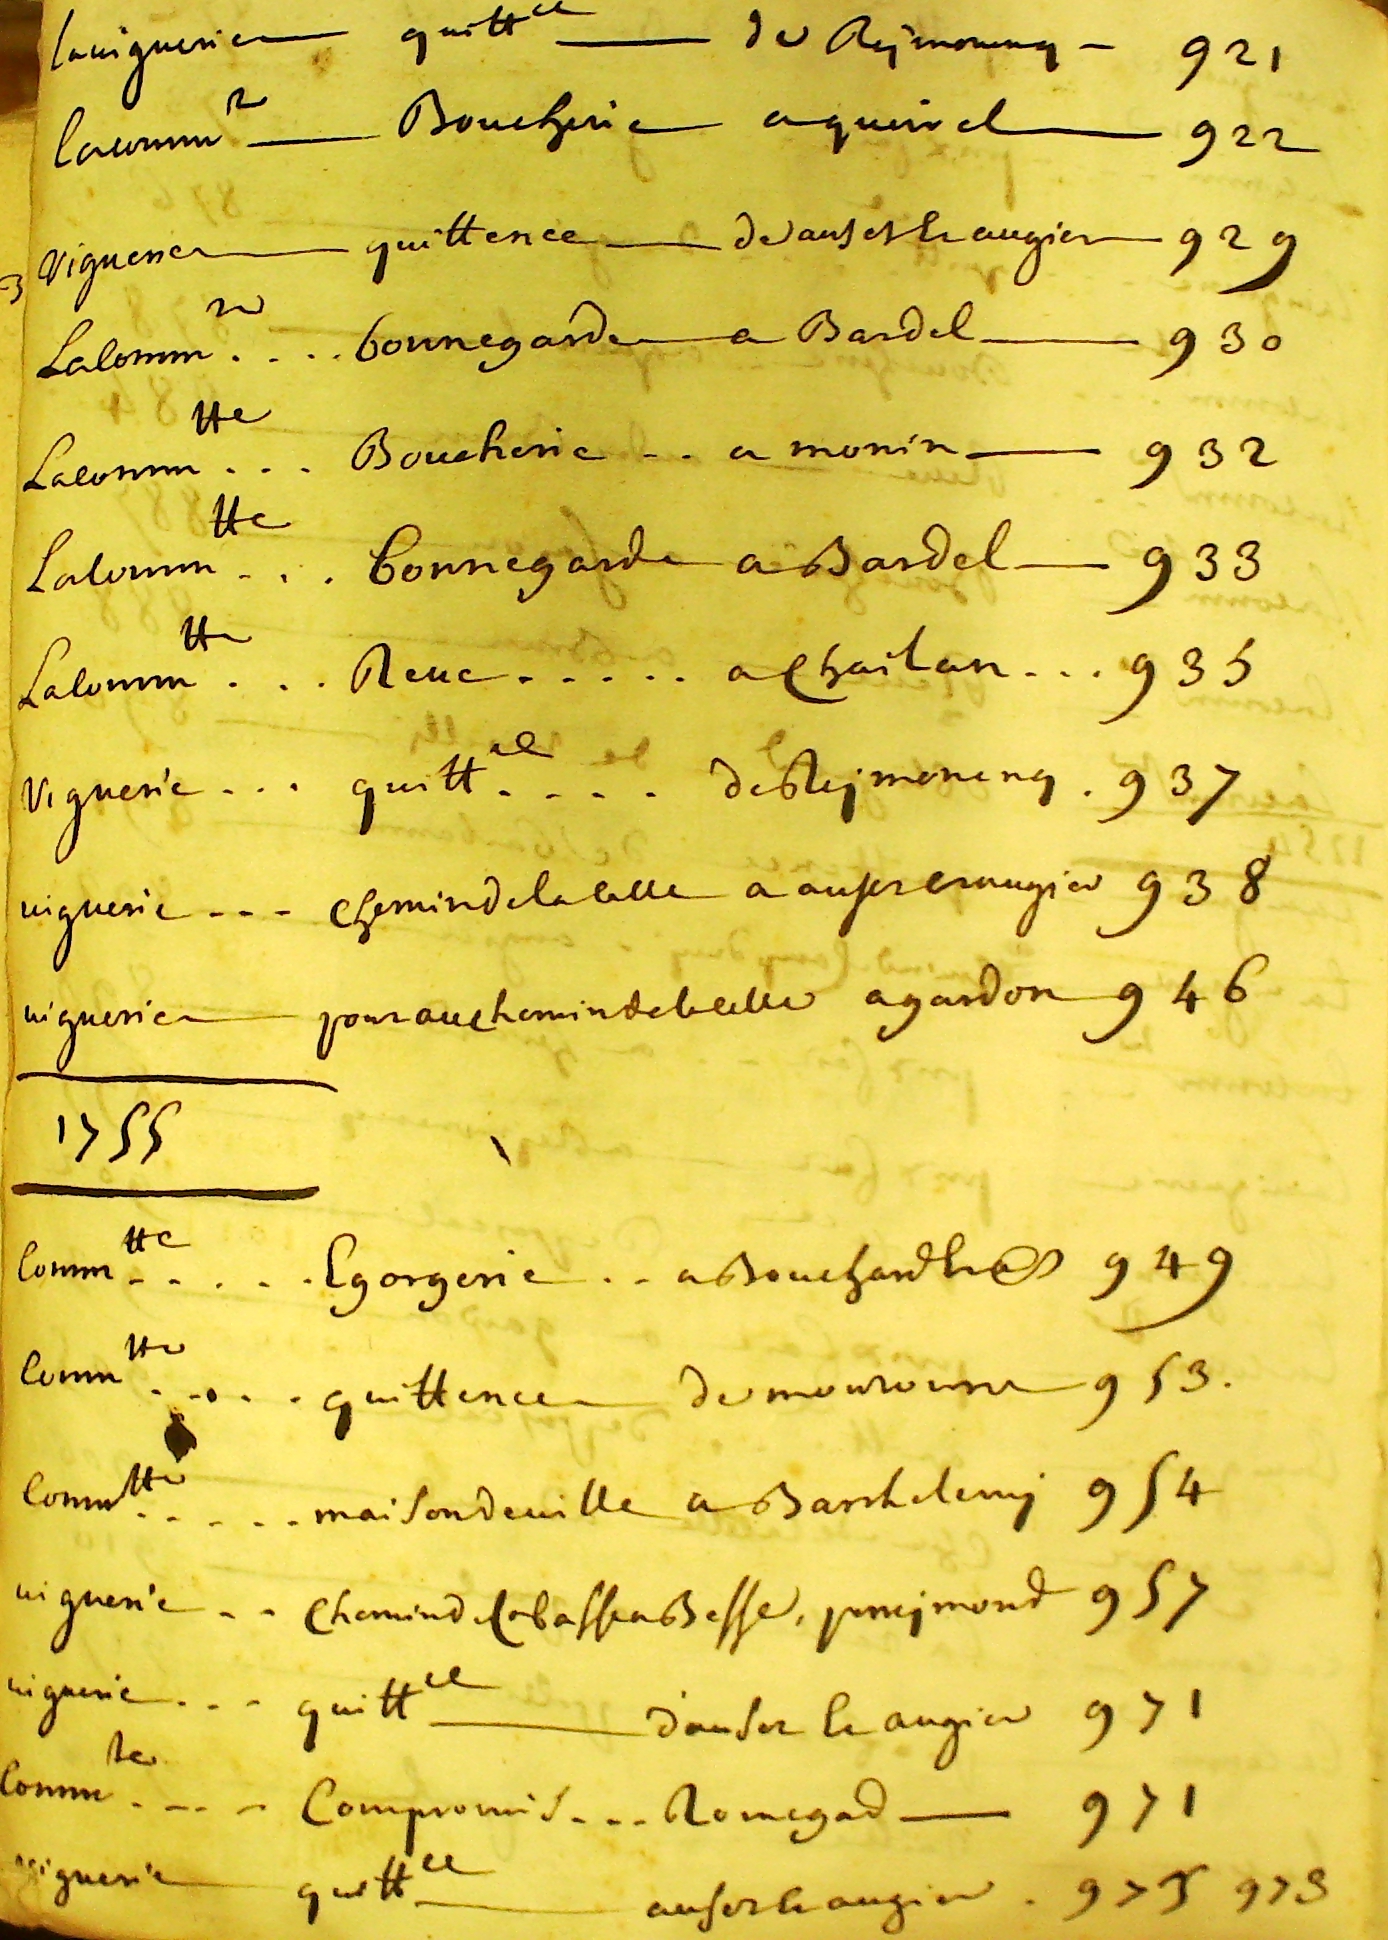 laviguerie quitt ce de Rejmonenq 921
lacomm te Boucherie a quinel 922
Viguerie quittence de ausset et augier 929
Lacomm te bonnegarde a Bardel 930
Lacomm tte . . . Boucherie . . a monin 932
Lacomm tte . . . bonnegarde a Bardel 933
Lacomm tte . . . Reve . . . . . a Chailan . . . 935
Viguerie . . . quitt ce . . . . de Rejmonenq . 937
viguerie - - - chemin de la celle a ausset et augier 938
viguerie pour au chemin de la celle a gardon 946
1755
Comm tte . . . . . Egorgerie . . a Bouchard 949
Comm tte . . . . . quittence de 953.
Comm tte . . . . . maison de ville a Barthelemj 954
viguerie . . chemin de Cabasse a Besse, 957
viguerie . . - quitt ce d'ausset et augier 971
Comm te . . . . Compromis . . . Romegad 971
viguerie quitt ce ausset et augier . 973